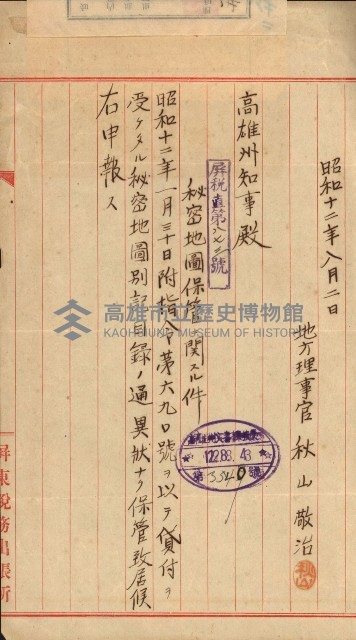 昭和十二年八月二日
地方理事官 秋山敬治
高雄州知事殿
屏税直第八七三號
秘密地圖保管ニ關スル件
昭和十二年一月三十日附指令第六九〇號ヲ以テ貸付ヲ
受ケタル秘密地圖別記目録ノ通異狀ナク保管致居候
右申報ス
12.8.6
第3340號
屏東税務出張所
高雄市立歷史博物館
KAOHSIUNG MUSEUM OF HISTORY